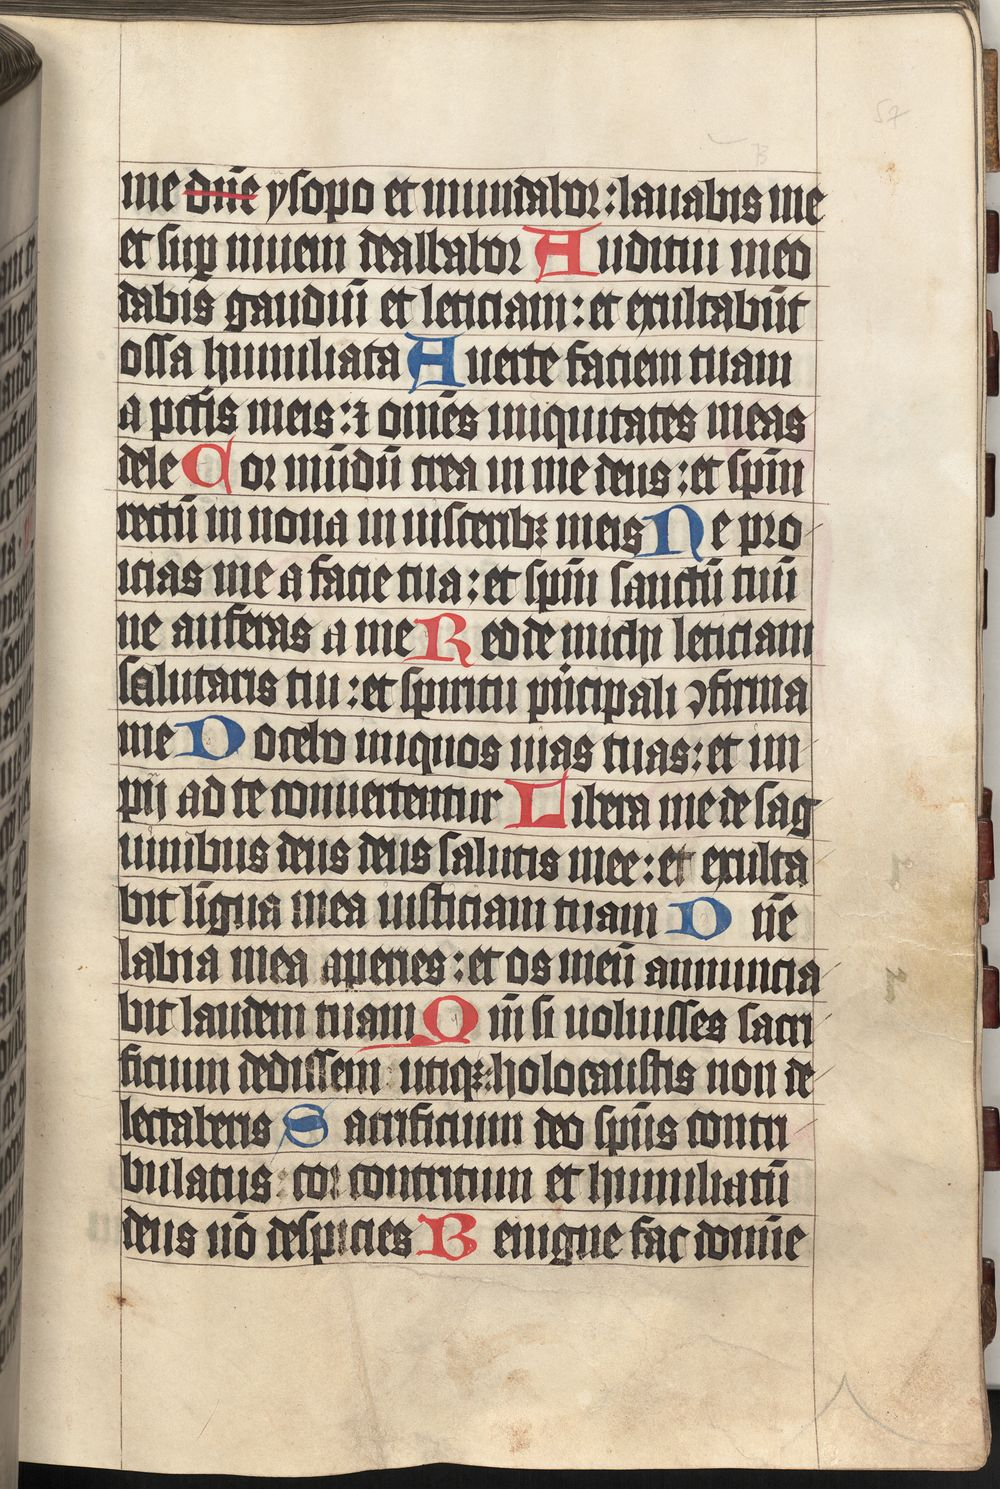 57
B
me dn̄e ysopo et mundabor : lauabis me
et suꝑ niuem dealbabor Auditui meo
dabis gaudiū et leticiam : et exultabūt
ossa humiliata Auerte faciem tuam
a pctīs meis : ⁊ omēs iniquitates meas
dele Cor mūdū crea in me deus : et spm̄
rectū in noua in uisceribꝫ meis Ne pro
icias me a facie tua : et spm̄ sanctū tuū
ne auferas a me Redde michi leticiam
salutaris tui : et spiritu pͥncipali ꝯfirma
me Docebo iniquos uias tuas : et im
pij ad te conuertentur Libera me de sag
uinibus deus deus salutis mee : et exulta
bit līgua mea iusticiam tuam Dn̄e
labia mea aperies : et os meū annuncia
bit laudem tuam Qm̄ si uoluisses sacri
ficium dedissem utiqꝫ : holocaustis non de
lectaberis Sacrificium deo spūs contri
bulatus : cor contritum et humiliatū
deus nō despicies Benigne fac domīe